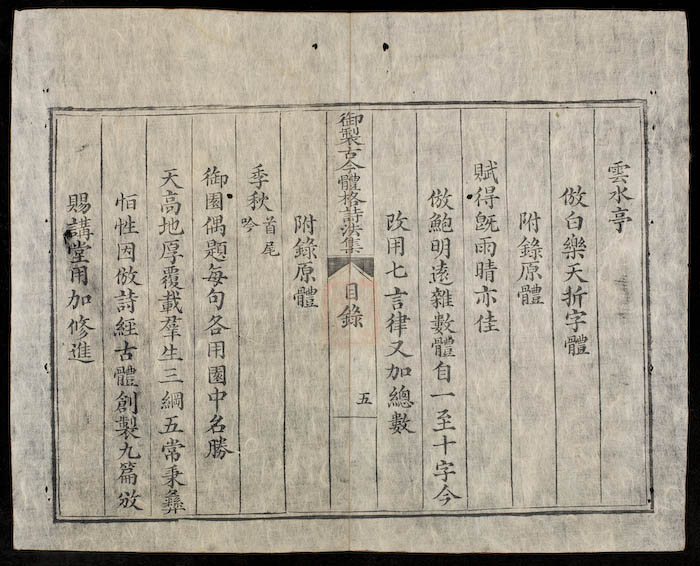 雲水亭
倣白樂天折字體
附錄原體
賦得旣雨晴亦佳
倣鮑明遠雜數體自一至十字今
改用七言律又加總數
御製古今體格詩法集
目錄
五
附錄原體
季秋首尾吟
御園偶題每句各用園中名勝
天高地厚覆載羣生三綱五常秉彝
恒性因倣詩經古體創製九篇攽
賜講堂用加修進